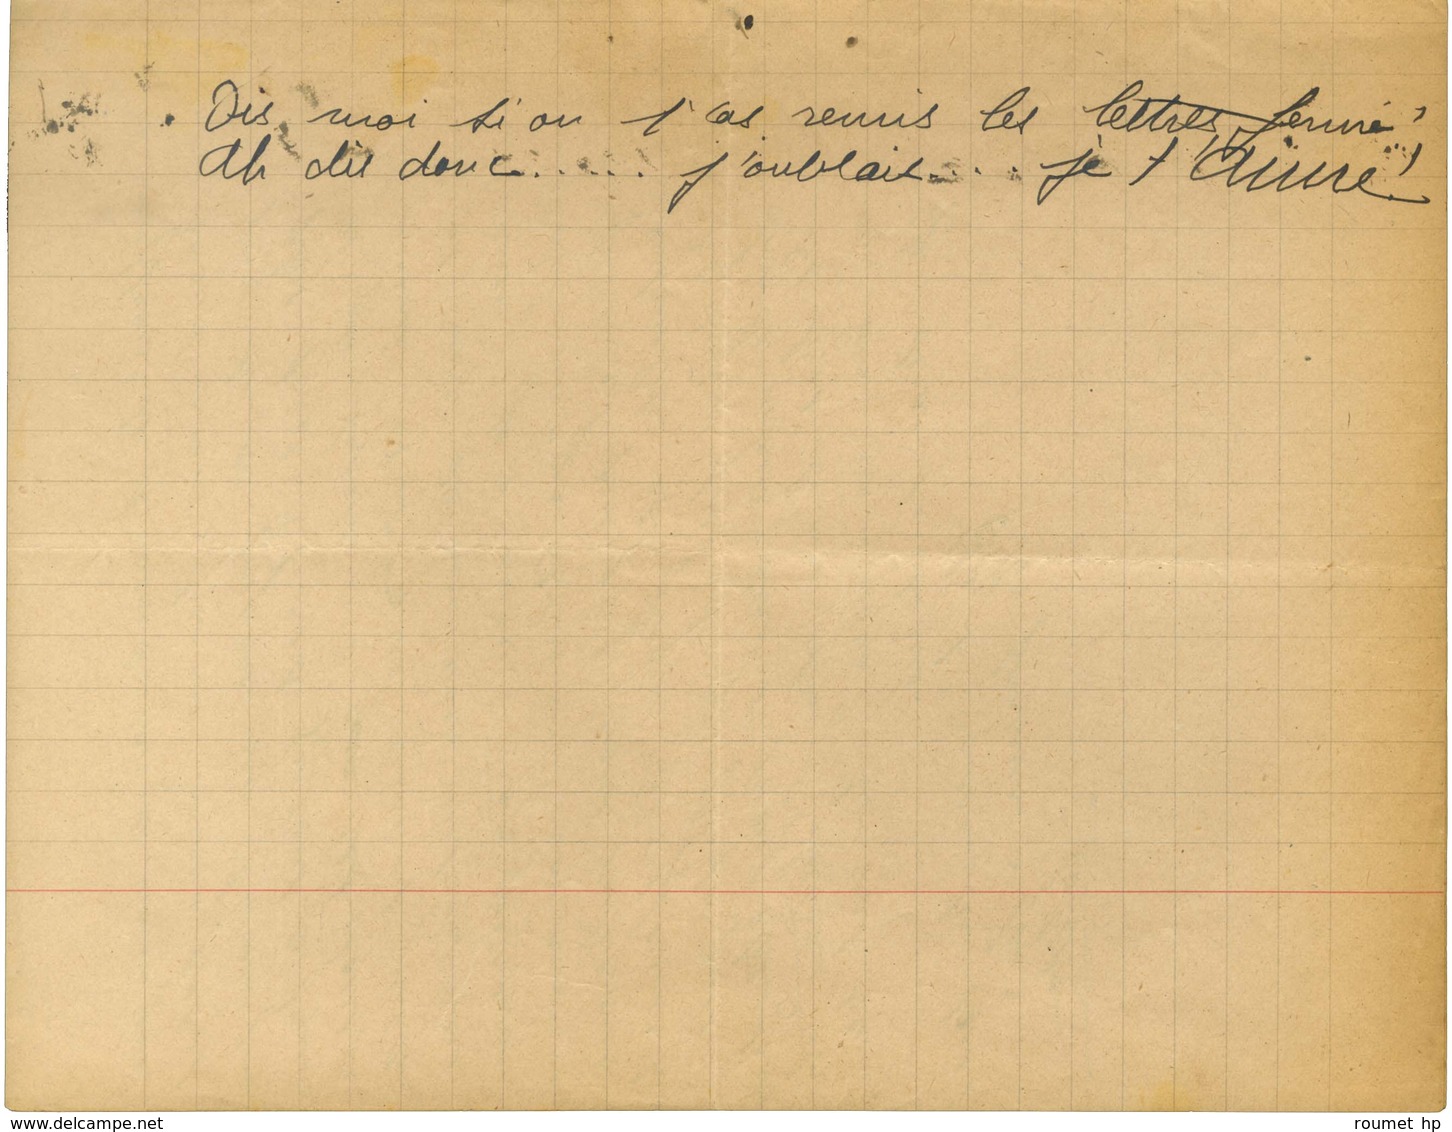 Dis moi si on t'as remis les lettres fermé?
Ah dis donc...... j'oublais.... je t'Aime!
www.delcampe.net
roumet hp